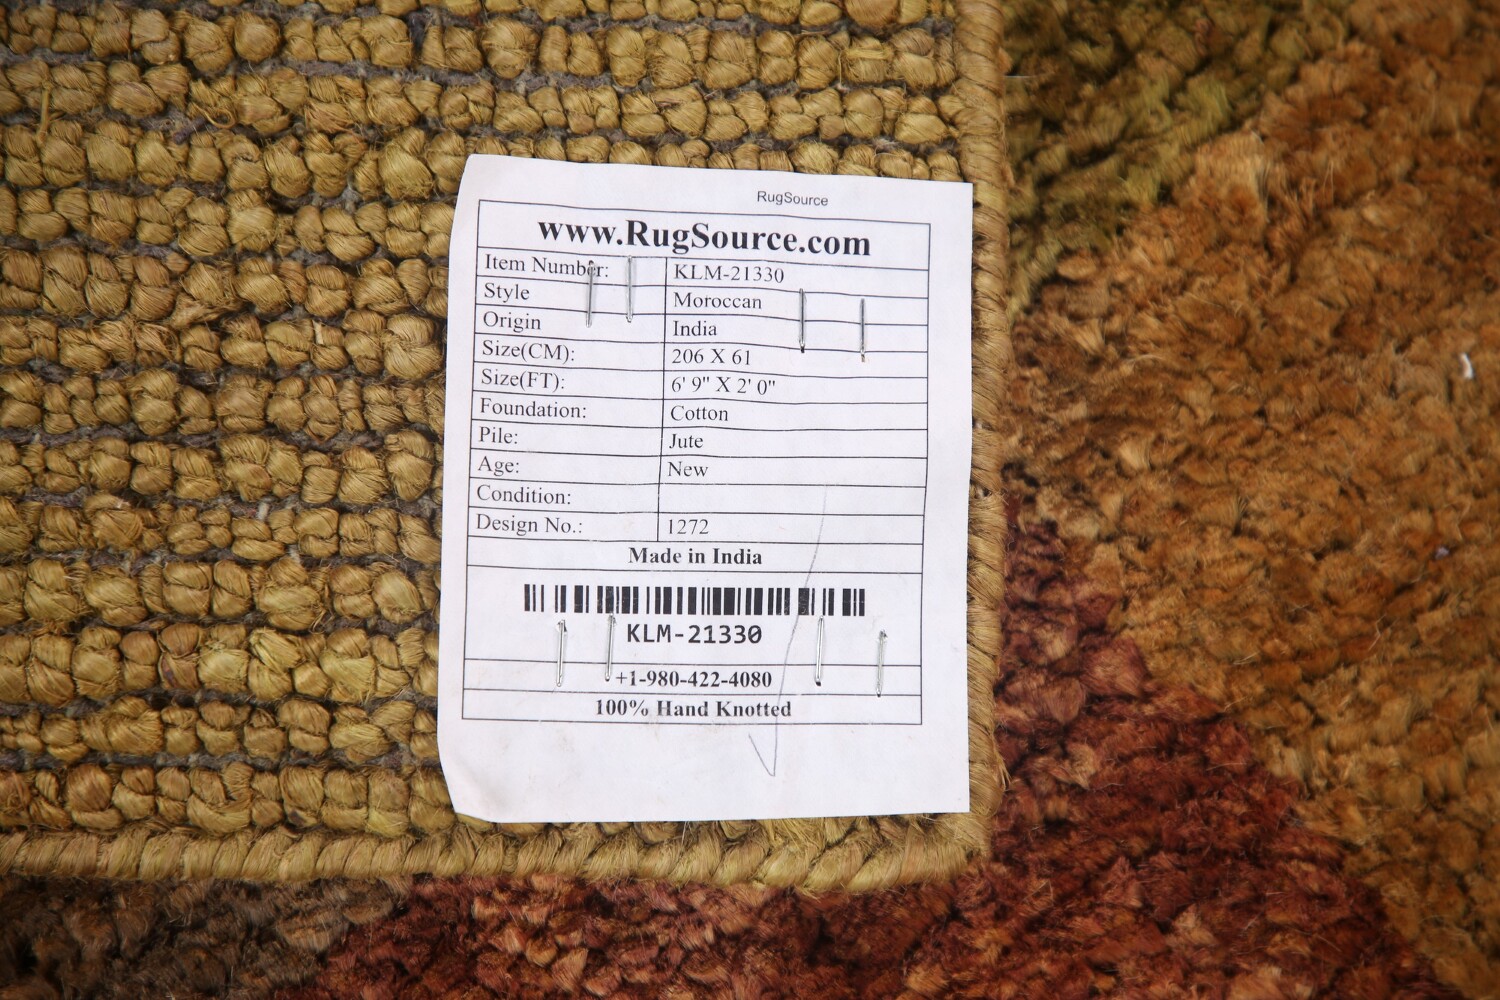 RugSource
www.RugSource.com
Item Number: KLM-21330
Style Moroccan
Origin India
Size(CM): 206 X 61
Size(FT): 6' 9" X 2' 0"
Foundation: Cotton
Pile: Jute
Age: New
Condition:
Design No.: 1272
Made in India
KLM-21330
+1-980-422-4080
100% Hand Knotted